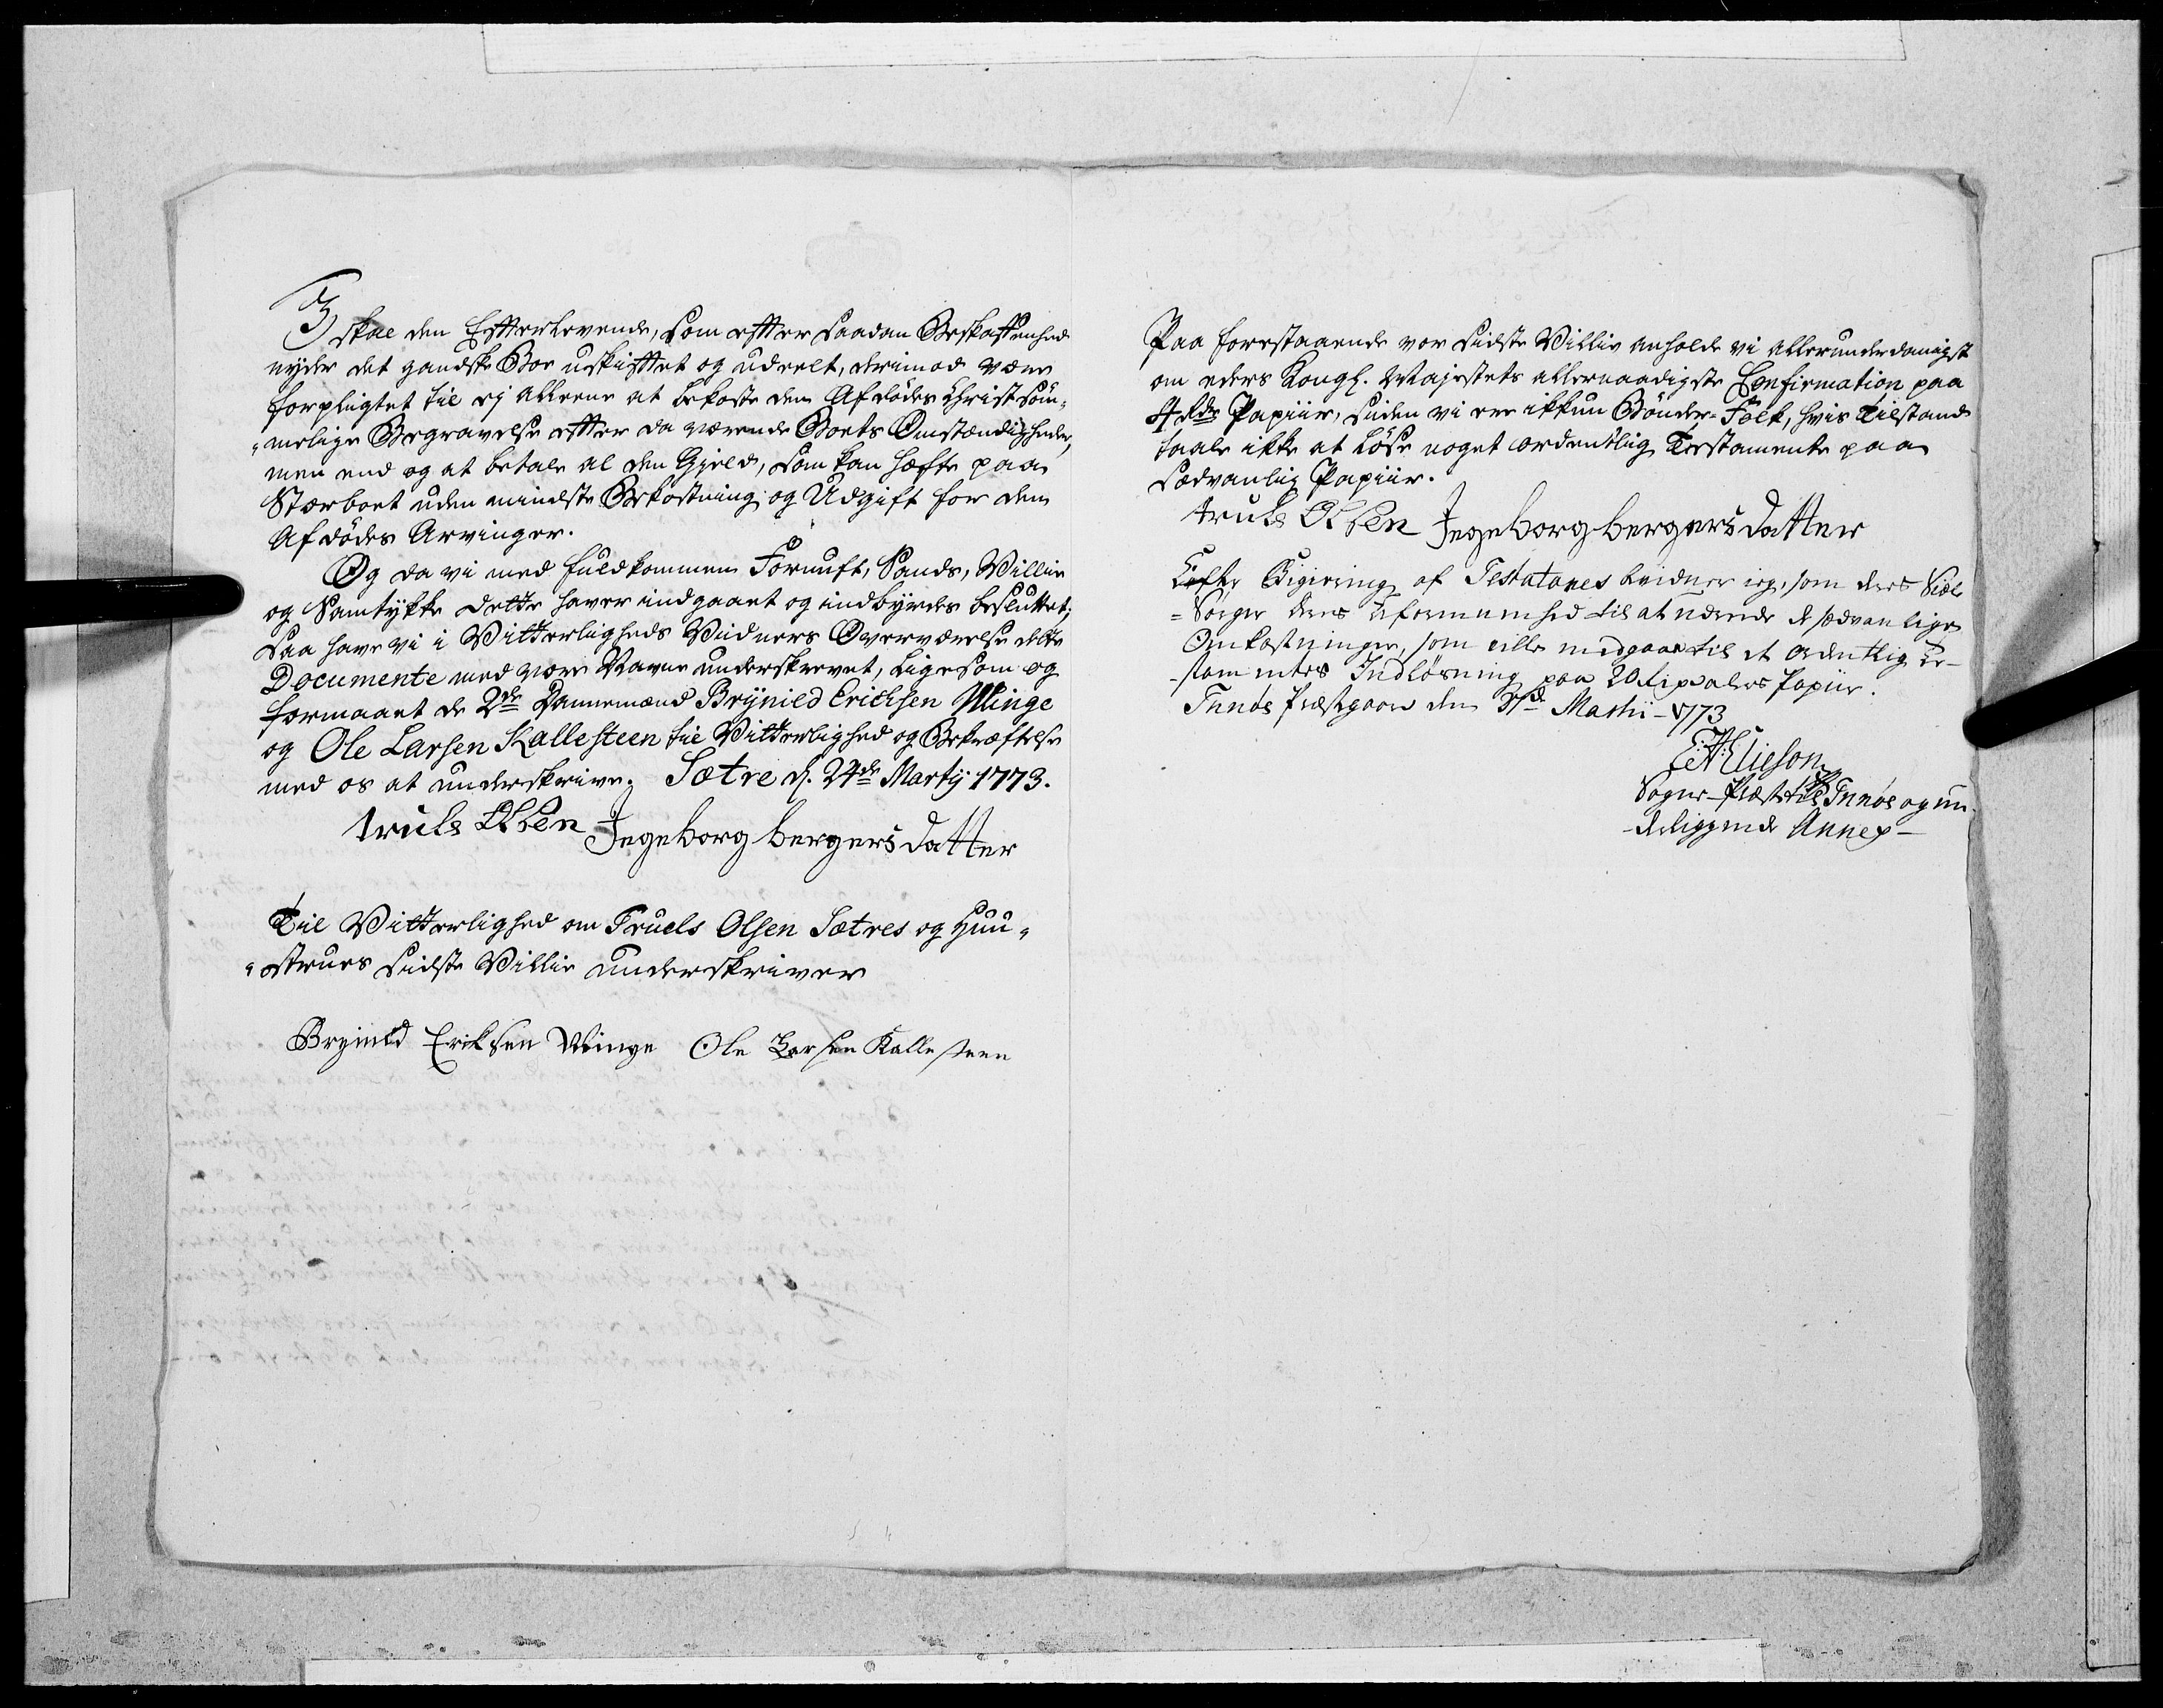 3/ skal den Efterlevende, som efter saadan Beskaffenhed
nyder det gandske Boe uskiftet og udeelt, derimod være
forpligtet til ej alleene at bekoste den Afdødes Christ søm„
„melige Begravelse efter da værende Boets Omstændigheder,
men end og at betale al den Gjeld, som kan hæfte paa
Stærboet uden mindste Bekostning og Udgift for den
Afdødes Arvinger.
Og da vi med fuldkommen Fornuft, Sands, Villie
og Samtykke dette haver indgaaet og indbyrdes besluttet;
Saa have vi i Vitterligheds Vidners Overværelse dette
Documente med vore Navne underskrevet, ligesom og
formaaet de 2de Dannemænd Brynild Erichsen Winge
og Ole Larsen Kallesteen til Vitterlighed og Bekræftelse
med os at underskrive. Sætre d. 24de Martij 1773.
truls Olsen Jngeborg bergersdatter
Til Vitterlighed om Truels Olsen Sætres og Huu„
„struers sidste Villie underskriver
Brynild Eriksen Winge Ole Larsen Kallesteen
Paa forestaaende vor sidste Villie anholde vi allerunderdanigst
om eders Kongl. Majestets allernaadigste Confirmation paa
4 Rdr Papiir, siden vi ere ikkun Bönder-Folk, hvis tilstand
taale ikke at löse noget ordentlig Testamente paa
sædvanlig Papiir.
truls Olsen Jngeborg bergersdatter
Efter Begiering af Testatores vidner ieg, som deres Siæle
=Sørger deres uformuenhed til at udrede de sædvanlige
Omkostninger, som ville medgaae til et ordentlig Te-
-stamentes Indløsning paa 20 Rixdalers Papiir.
Tunøe Præstgaard den Martii - 1773
Elieson
Sogne-Præst til Tunøe og un-
-deliggende Annex-